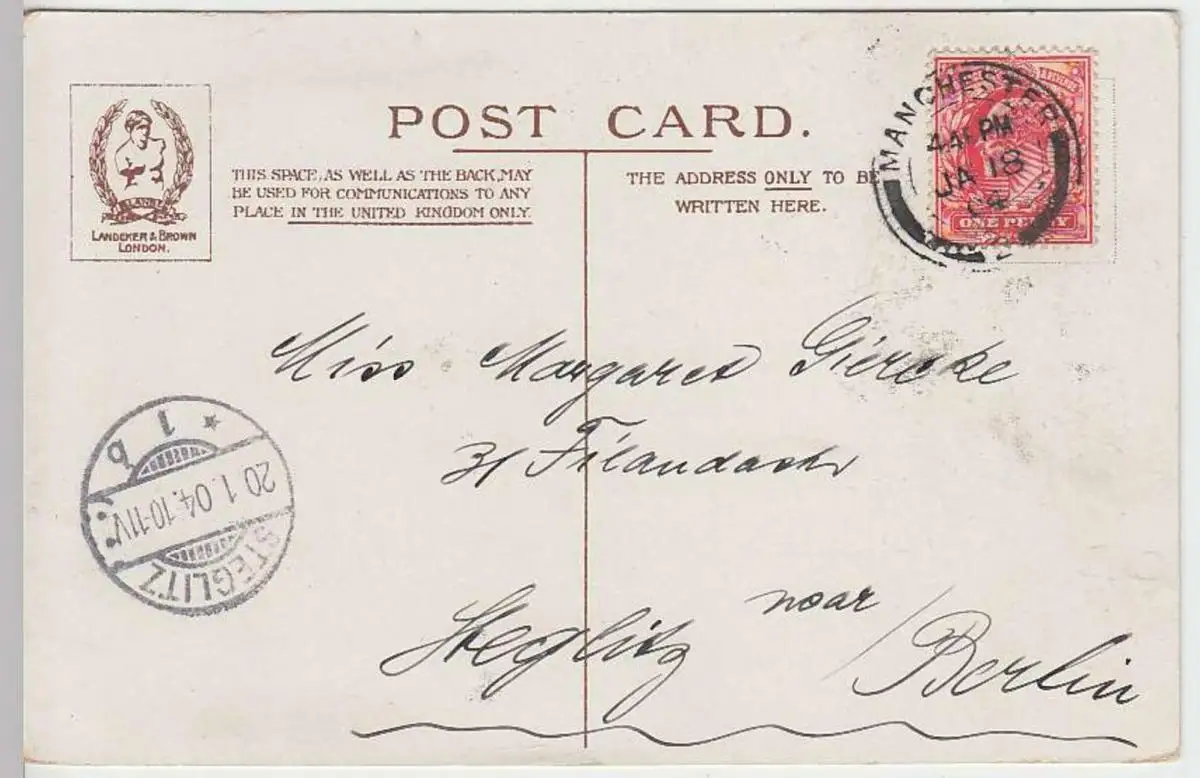 POST CARD.
THIS SPACE, AS WELL AS THE BACK, MAY
BE USED FOR COMMUNICATIONS TO ANY
PLACE IN THE UNITED KINGDOM ONLY.
THE ADDRESS ONLY TO BE
WRITTEN HERE.
LANDEKER & BROWN
LONDON.
MANCHESTER
PM
JA 18
04
ONE PENNY
Miss Margaret Giercke
31 Filandastr
Steglitz near Berlin
1 b
20.1.04.10-11V.
STEGLITZ